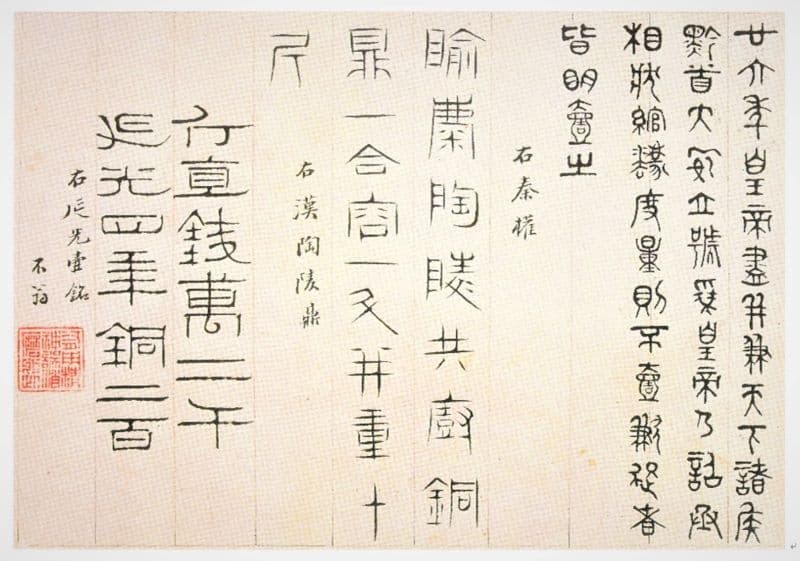 廿六年皇帝盡并兼天下諸侯
黔首大安立號爲皇帝乃詔丞
相狀綰灋度量則不壹歉疑者
皆明壹之
右秦權
隃麋陶陵共廚銅
鼎一合容一斗并重十
斤
右漢陶陵鼎
斤直錢萬二千
延光四年銅二百
右延光壷銘
不翁